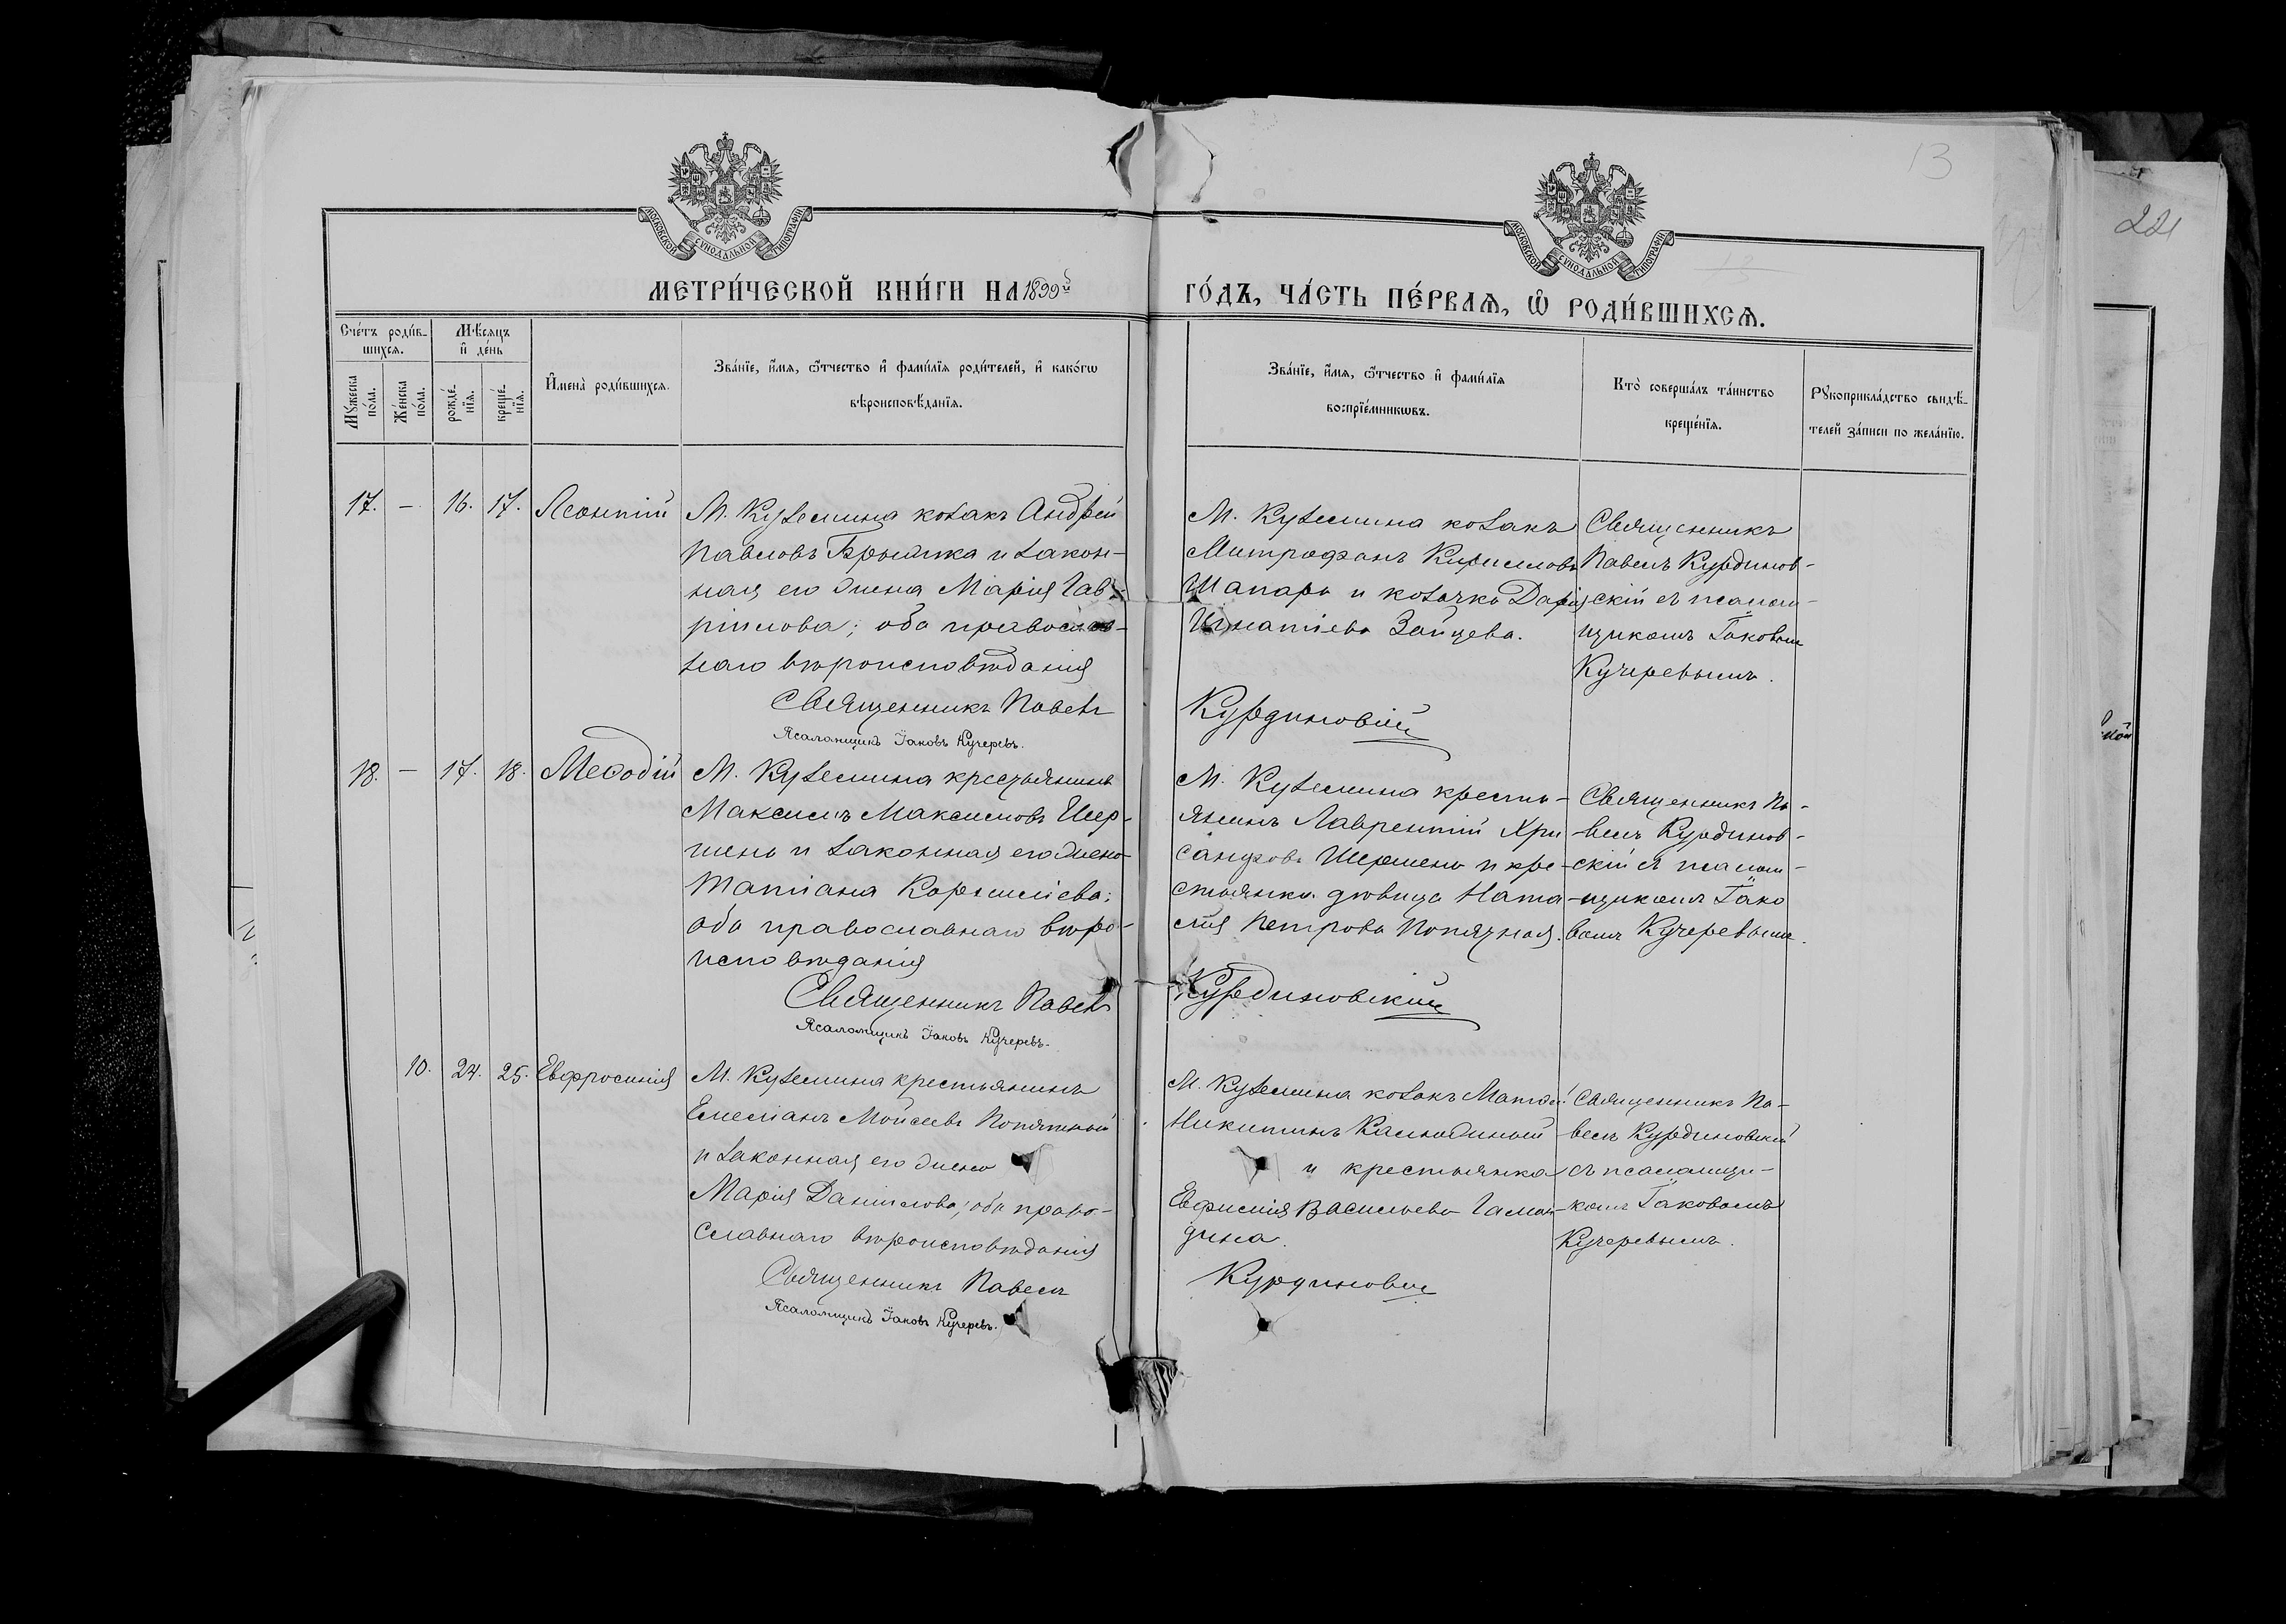 13
221
МОСКОВСКОЙ СѴНОДАЛЬНОЙ ТИПОГРАФІИ
МОСКОВСКОЙ СѴНОДАЛЬНОЙ ТИПОГРАФІИ
МЕТРИ́ЧЕСКОЙ КНИ́ГИ НА 1899й ГО́ДЪ, ЧА́СТЬ ПЕ́РВАѦ, Ѡ҆ РОДИ́ВШИХСѦ.
Сче́тъ роди́в-
шихсѧ.
Мꙋ́жеска по́ла.
Же́нска по́ла.
Мѣ́сѧцъ и҆ де́нь
рожде́-
нїѧ.
креще́-
нїѧ.
И҆мена̀ роди́вшихсѧ.
Зва́нїе, и҆́мѧ, ѻ҆́тчество и҆ фами́лїѧ роди́телей, и҆ како́гѡ
вѣроисповѣ́данїѧ.
Зва́нїе, и҆́мѧ, ѻ҆́тчество и҆ фами́лїѧ
воспрїе́мникѡвъ.
Кто̀ соверша́лъ та́инство
креще́нїѧ.
Рꙋкоприкла́дство свидѣ́-
телей за́писи по жела́нїю.
17. — 16. 17. Леонтій
М. Куземина козакъ Андрей
Павловъ и закон-
ная его жена Марія Гав-
ріилова; оба православ-
наго вѣроисповѣданія
Священникъ Павелъ Курдиновскій
Псаломщикъ Іаковъ Кучеревъ.
М. Куземина козакъ
Митрофанъ Кирилловъ
Шапаръ и козачка Дарія
Игнатіева Зайцева.
Священникъ
Павелъ Курдинов-
скій съ псалом-
щикомъ Іаковомъ
Кучеревымъ.
18. — 17. 18. Меѳодій
М. Куземина крестьянинъ
Максимъ Максимовъ Шер-
шень и законная его жена
Татіана Корниліева;
оба православнаго вѣро-
исповѣданія
Священникъ Павелъ Курдиновскій
Псаломщикъ Іаковъ Кучеревъ.
М. Куземина кресть-
янинъ Лаврентій Хри
санфовъ Шершень и кре-
стьянка дѣвица Ната-
лія Петрова Попятная.
Священникъ Па-
велъ Курдинов-
скій съ псалом-
щикомъ Іако
вомъ Кучеревымъ.
10. 24. 25. Евфросинія
М. Куземина крестьянинъ
Емеліанъ Мойсеевъ Попятный
и законная его жена
Марія Даніилова; оба право-
славнаго вѣроисповѣданія
Священникъ Павелъ Курдиновскій
Псаломщикъ Іаковъ Кучеревъ.
М. Куземина козакъ Матѳей
Никитинъ
и крестьянка
Евфимія Васильева
Священникъ Па-
велъ Курдиновскій
съ псаломщи-
комъ Іаковомъ
Кучеревымъ.